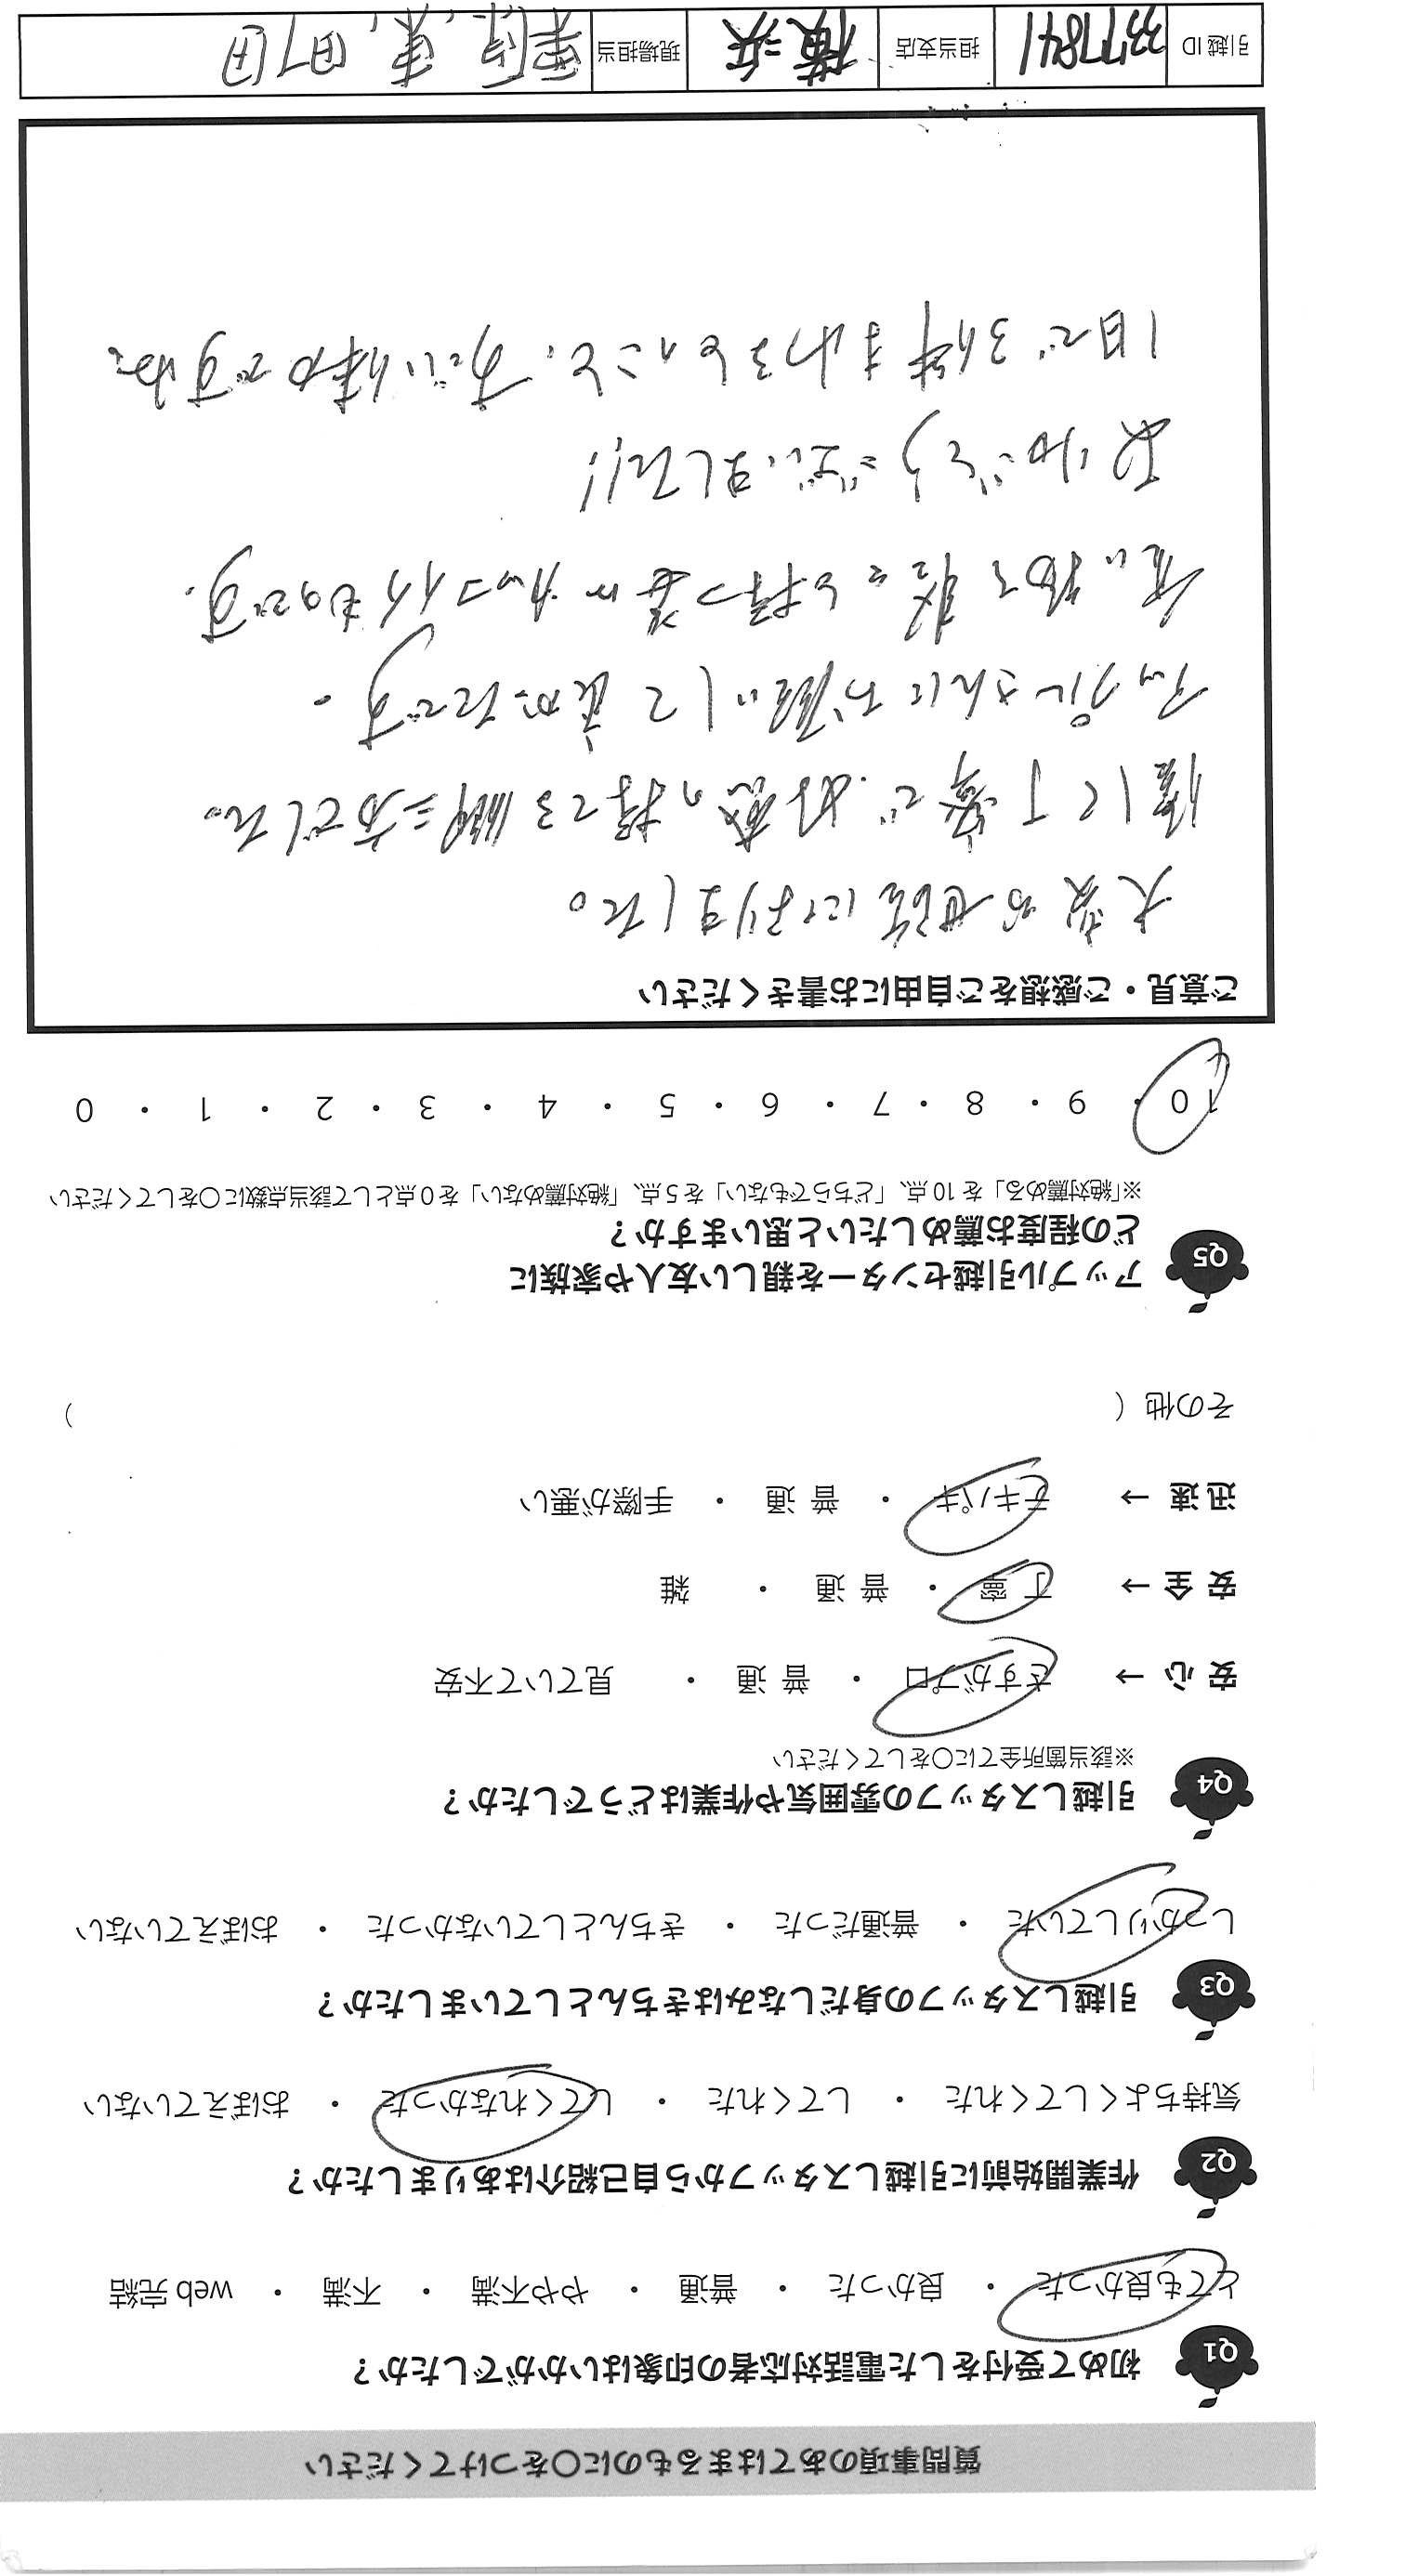 質問事項のあてはまるものに○をつけてください
Q1 初めて受付をした電話対応者の印象はいかがでしたか？
とても良かった ・ 良かった ・ 普通 ・ やや不満 ・ 不満 ・ web 完結
Q2 作業開始前に引越しスタッフから自己紹介はありましたか？
気持ちよくしてくれた ・ してくれた ・ してくれなかった ・ おぼえていない
Q3 引越しスタッフの身だしなみはきちんとしていましたか？
しっかりしていた ・ 普通だった ・ きちんとしていなかった ・ おぼえていない
Q4 引越しスタッフの雰囲気や作業はどうでしたか？
※該当箇所全てに○をしてください
安 心 → さすがプロ ・ 普 通 ・ 見ていて不安
安 全 → 丁 寧 ・ 普 通 ・ 雑
迅 速 → テキパキ ・ 普 通 ・ 手際が悪い
その他（ ）
Q5 アップル引越センターを親しい友人や家族に
どの程度お薦めしたいと思いますか？
※「絶対薦める」を 10 点、「どちらでもない」を 5 点、「絶対薦めない」を 0 点として該当点数に○をしてください
10 ・ 9 ・ 8 ・ 7 ・ 6 ・ 5 ・ 4 ・ 3 ・ 2 ・ 1 ・ 0
ご意見・ご感想をご自由にお書きください
大変お世話になりました。
丁寧で、好感の持てる 方でした。
アップルさんにお願いして良かったです。
重い物を 持つ姿は カッコイイものです。
ありがとうございました!!
1日で3件まわるとのこと、すごい体力ですね。
引越 ID 3377841 担当支店 横浜 現場担当 東、町田